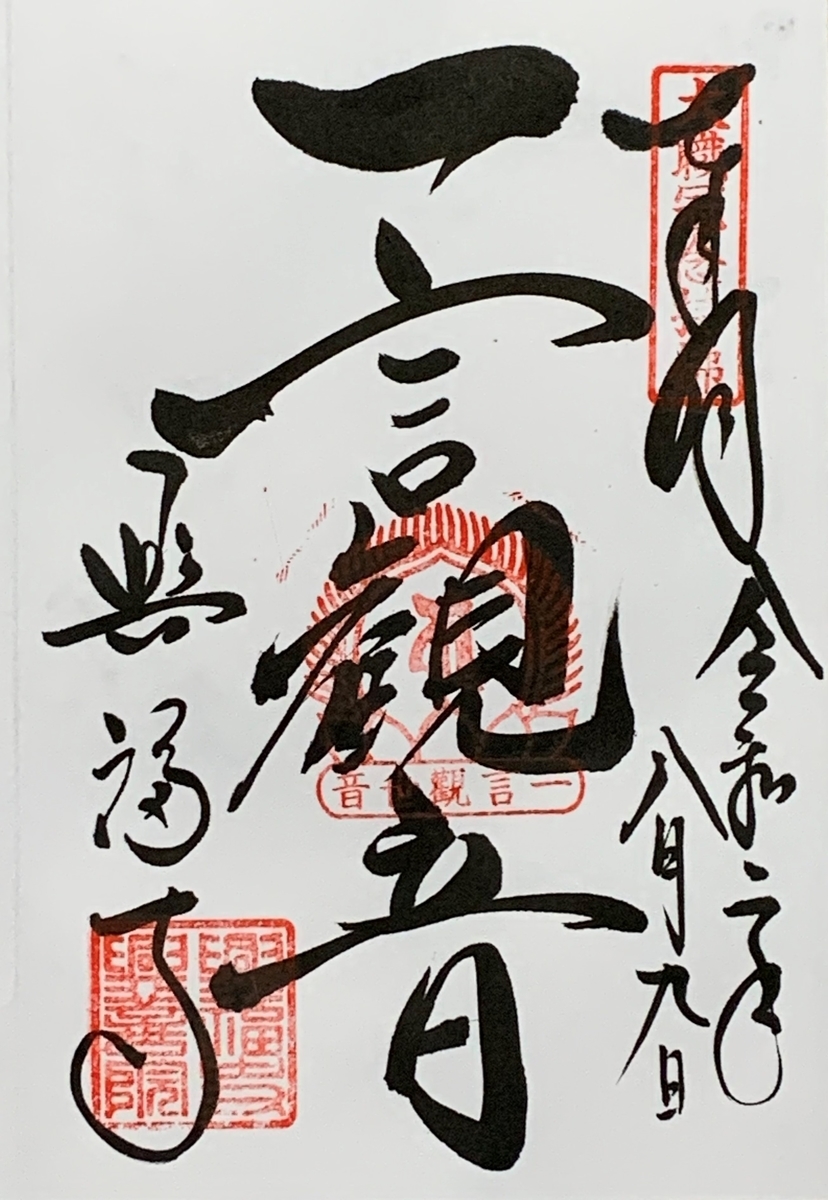 奉拝
令和二年
八月九日
一言観音
一言觀世音
興福寺